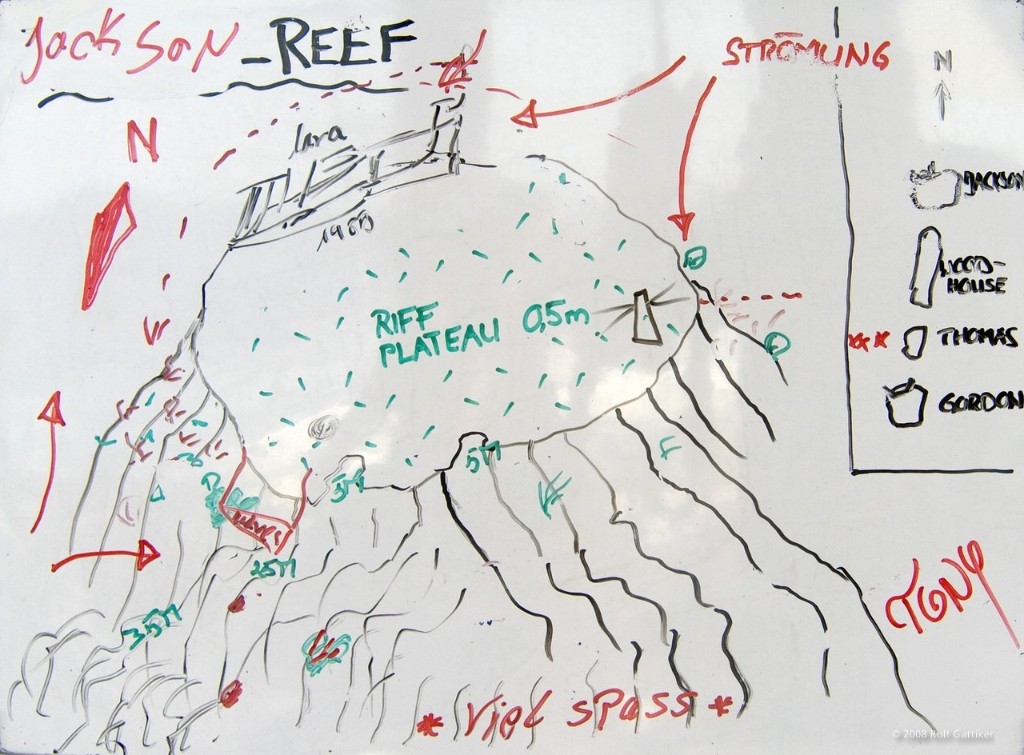 Jackson - REEF
STRÖMUNG
N
N
lara
JACKSON
WOOD-
HOUSE
RIFF
PLATEAU 0,5m
THOMAS
GORDON
5M
3M
25M
35M
TONY
* Viel Spass *
© 2008 Rolf Gattiker